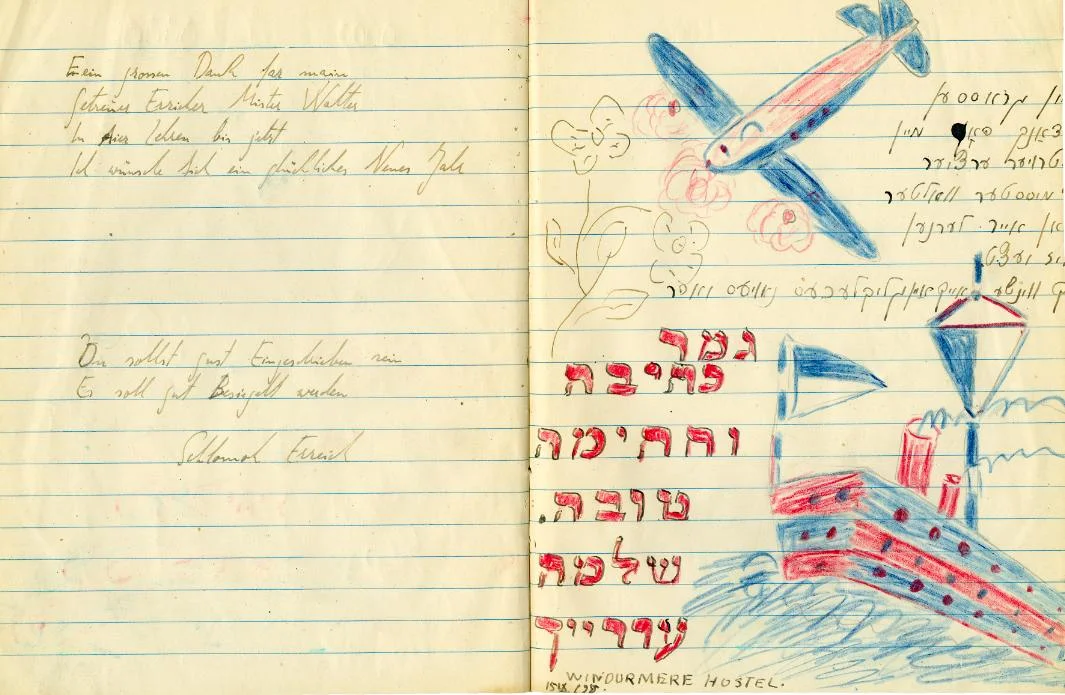 Ein grossen Dank far main
Getreuer Erzieher Mister Walter
In hier Lehren bis jetzt
Ich wünsche sich ein glückliches Neues Jahr
Du sollst gut Eingeschrieben sein
Es soll gut Besiegelt werden
Schlomoh Erreich
גראסען
דאנק פאר מיין
ערציער
מיסטער וואלטער
אין אייער לערנען
ביז יעצט
ווינשע אייך איין גליקלעכעס נאייעס יאהר
גמר
כתיבה
וחתימה
טובה.
שלמה
עררייך
WINDURMERE HOSTEL.